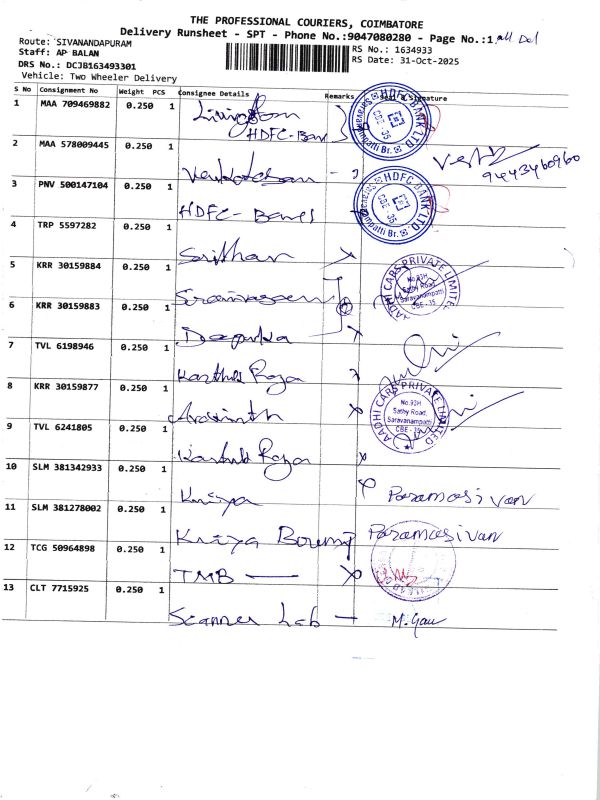 THE PROFESSIONAL COURIERS, COIMBATORE
Delivery Runsheet - SPT - Phone No.:9047080280 - Page No.:1 all Del
Route: SIVANANDAPURAM
Staff: AP BALAN
RS No.: 1634933
DRS No.: DCJB163493301
RS Date: 31-Oct-2025
Vehicle: Two Wheeler Delivery
S No Consignment No Weight PCS Consignee Details Remarks Seal & Signature
1 MAA 709469882 0.250 1 Livingston
HDFC-Bank
HDFC BANK LTD
CBE - 35
2 MAA 578009445 0.250 1 Venkatesan
9443460960
3 PNV 500147104 0.250 1 HDFC - Bank
HDFC BANK LTD
CBE - 35
4 TRP 5597282 0.250 1 Sridhar
5 KRR 30159884 0.250 1 Srinivasan
AADHI CARS PRIVATE LIMITED
No.93H
Sathy Road,
Saravanampatti
CBE - 35
6 KRR 30159883 0.250 1 Deepika
7 TVL 6198946 0.250 1 Karthik Raja
8 KRR 30159877 0.250 1 Aravinth
AADHI CARS PRIVATE LIMITED
No.93H
Sathy Road,
Saravanampatti
CBE - 35
9 TVL 6241805 0.250 1 Karthik Raja
10 SLM 381342933 0.250 1 Kriya Paramasivan
11 SLM 381278002 0.250 1 Kriya Paramasivan
12 TCG 50964898 0.250 1 TMB
13 CLT 7715925 0.250 1 Scanner Lab